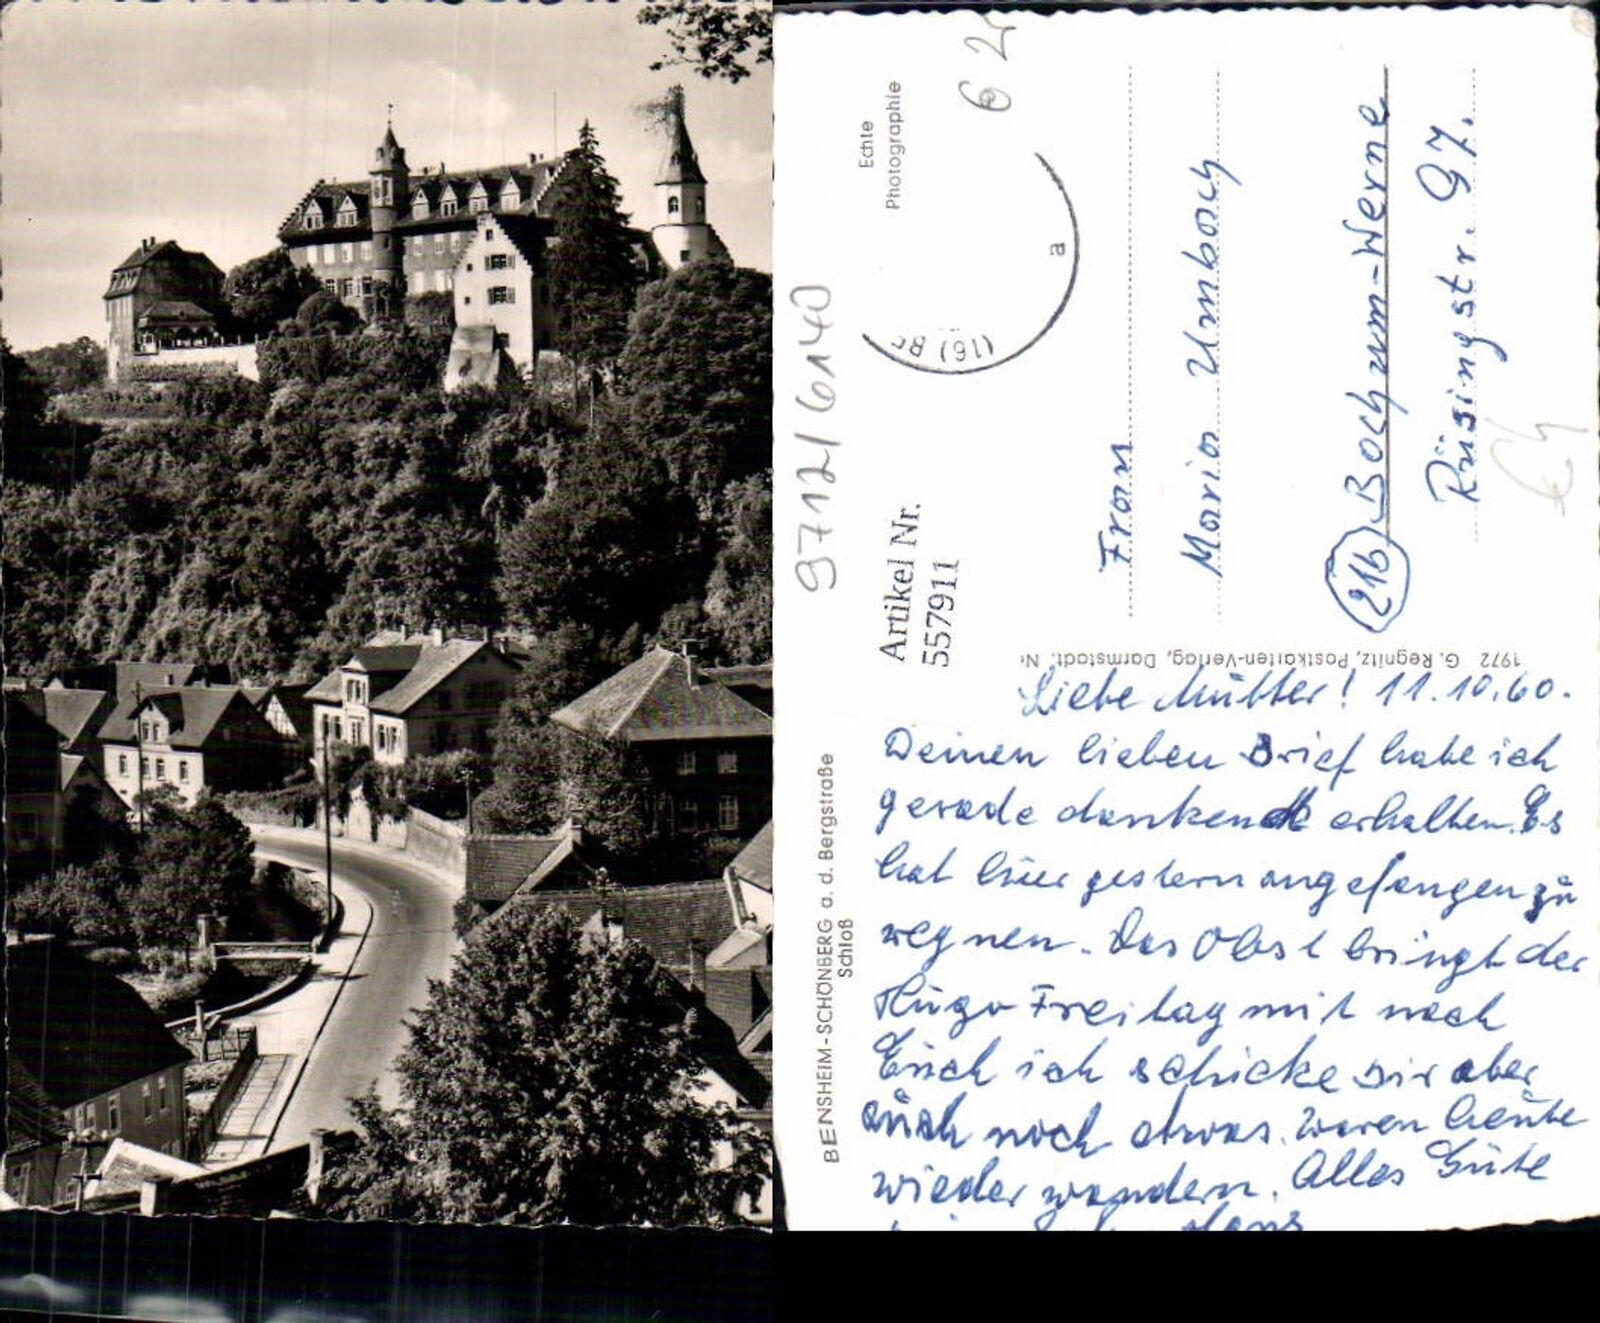 Echte
Photographie
6 2
(16)
a
9712/6140
Artikel Nr.
557911
Frau
Maria Umbach
(21b) Bochum-Werne
Rüsingstr. 97.
1972 G. Regnitz, Postkarten-Verlag, Darmstadt.
BENSHEIM-SCHÖNBERG a. d. Bergstraße
Schloß
Liebe Mutter! 11.10.60.
Deinen lieben Brief habe ich
gerade dankend erhalten. Es
hat hier gestern angefangen zu
regnen. Das Obst bringt der
Hugo Freitag mit nach
Euch ich schicke Dir aber
auch noch etwas. Waren heute
wieder wandern. Alles Gute
Hans